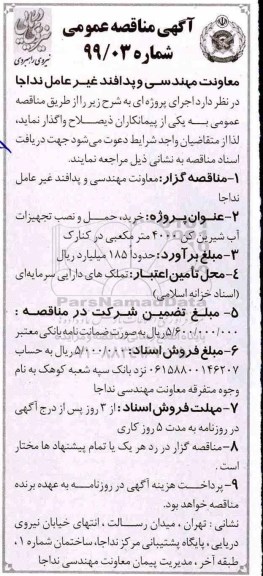 آگهی مناقصه عمومی
شماره ۹۹/۰۳
نیروی راهبردی
معاونت مهندسی و پدافند غیر عامل نداجا
در نظر دارد اجرای پروژه‌ای به شرح زیر را از طریق مناقصه
عمومی به یکی از پیمانکاران ذیصلاح واگذار نماید،
لذا از متقاضیان واجد شرایط دعوت می‌شود جهت دریافت
اسناد مناقصه به نشانی ذیل مراجعه نمایند.
۱-مناقصه گزار: معاونت مهندسی و پدافند غیر عامل
نداجا
۲-عنوان پروژه: خرید، حمل و نصب تجهیزات
آب شیرین کن ۴۰۰۰ متر مکعبی در کنارک
۳-مبلغ برآورد: حدوداً ۱۸۵ میلیارد ریال
۴-محل تأمین اعتبار: تملک های دارایی سرمایه‌ای
(اسناد خزانه اسلامی)
۵- مبلغ تضمین شرکت در مناقصه :
۵/۶۰۰/۰۰۰/۰۰۰ ریال به صورت ضمانت نامه بانکی معتبر
۶-مبلغ فروش اسناد: ۵/۰۰۰/۰۰۰ ریال به حساب
۰۶۱۵۸۸۰۰۱۴۶۲۰۷ نزد بانک سپه شعبه کوهک به نام
وجوه متفرقه معاونت مهندسی نداجا
۷-مهلت فروش اسناد: از ۳ روز پس از درج آگهی
در روزنامه به مدت ۵ روز کاری
۸-مناقصه گزار در رد هر یک یا تمام پیشنهاد ها مختار
است .
۹-پرداخت هزینه آگهی در روزنامه به عهده برنده
مناقصه خواهد بود.
نشانی : تهران ، میدان رسالت ، انتهای خیابان نیروی
دریایی ، پایگاه پشتیبانی مرکز نداجا، ساختمان شماره ۱ ،
طبقه آخر ، مدیریت پیمان معاونت مهندسی نداجا
ParsNamadData